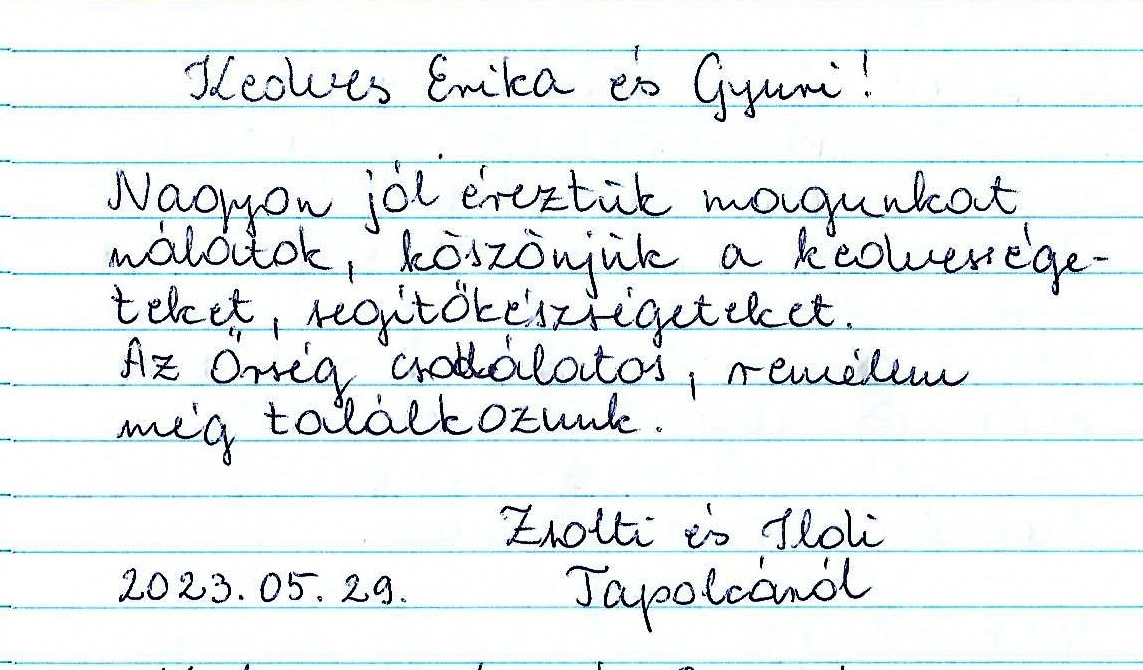 Kedves Erika és Gyuri!
Nagyon jól éreztük magunkat
nálatok, köszönjük a kedvessége-
teket, segítőkészségeteket.
Az Őrség csodálatos, remélem
még találkozunk.
Zsolti és Ildi
2023.05.29. Tapolcáról